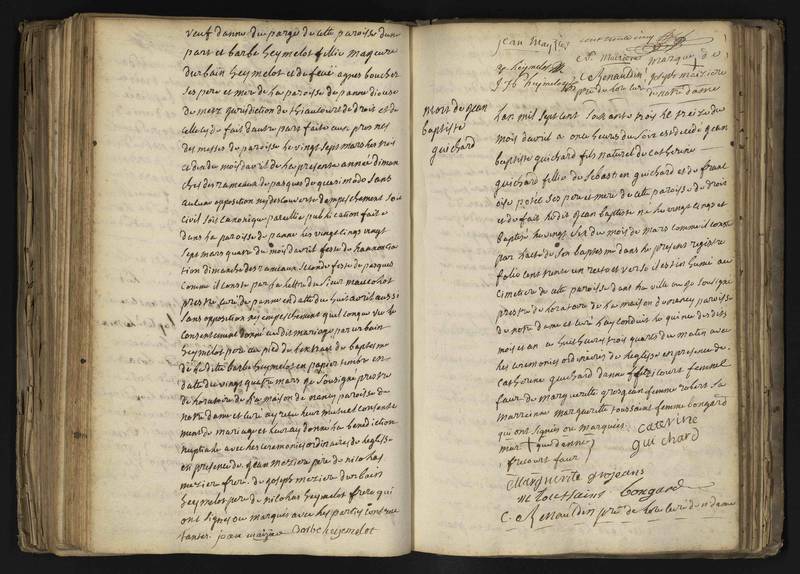 veuf danne du pargé de cette paroisse dune
part et barbe heymelot fille majeure
durbain heymelot et de feüe agnes boucher
ses pere et mere de la paroisse de panne diocese
de metz jurisdiction de thiaucourt de droit et de
celle cy de fait dautre part faite aux prones
des messes de paroisse le vingt sept mars les trois
et dix du mois davril de la presente année diman
ches des rameaux de pasques de quasimodo sans
aucune opposition ny decouverte dempeschement soit
civil soit canonique pareille publication faite
dans la paroisse de panne les vingt
sept mars quatre du mois davril feste de lannontia
tion dimanche des rameaux seconde feste de pasques
comme il conste par la lettre du sieur
prestre curé de panne en datte du huit avril aussi
sans opposition ny empeschement quelconque vu le
consentement donné audit mariage par urbain
heymelot pere au pied de lextrait de baptesme
de ladite barbe heymelot en papier timbre en
datte du vingt quatre mars je soussigné prestre
de loratoire de la maison de nancy paroisse de
notre dame et curé ay receu leur mutuel consente
ment de mariage et leur ay donné la benediction
nuptiale avec les ceremonies ordinaires de leglise
en presence de jean maziere pere de nicolas
meziere frere de joseph meziere durbain
heymelot pere de nicolas heymelot frere qui
ont signés ou marqués avec les parties contrac
tantes. jean maizière Barbe heymelot
jean Maizier
N. Maizière marque de
heymelot C Renauldin joseph maiziere
J fb heymelot pre de lor curé de notre dame
Mort de jean
baptiste
guichard
lan mil sept cent soixante trois le treize du
mois davril a onze heures du soir est decedé jean
baptiste guichard fils naturel de catherine
guichard fille de sebastien guichard et de
ses pere et mere de cette paroisse de droit
et de fait ledit jean baptiste né le vingt cinq et
baptisé le vingt six du mois de mars comme il conste
par lacte de son baptesme dans le present registre
folio cent trente un recto et verso il est inhumé au
cimetiere de cette paroisse dans la ville ou je soussigné
prestre de loratoire de la maison de nancy paroisse
de notre dame et curé lay conduit le quinze desdits
mois et an a huit heures trois quarts du matin avec
les ceremonies ordinaires de leglise en presence de
catherine guichard danne fricourt femme
faur de marguerite grosjean femme robert sa
marreinne marguerite toussaint femme bongard
qui ont signés ou marqués. caterine
mar + que danne guichard
fricourt faur
Marguerite grosjeans
M Toussaint bongard
C. Renauldin pre de lor curé de n dame